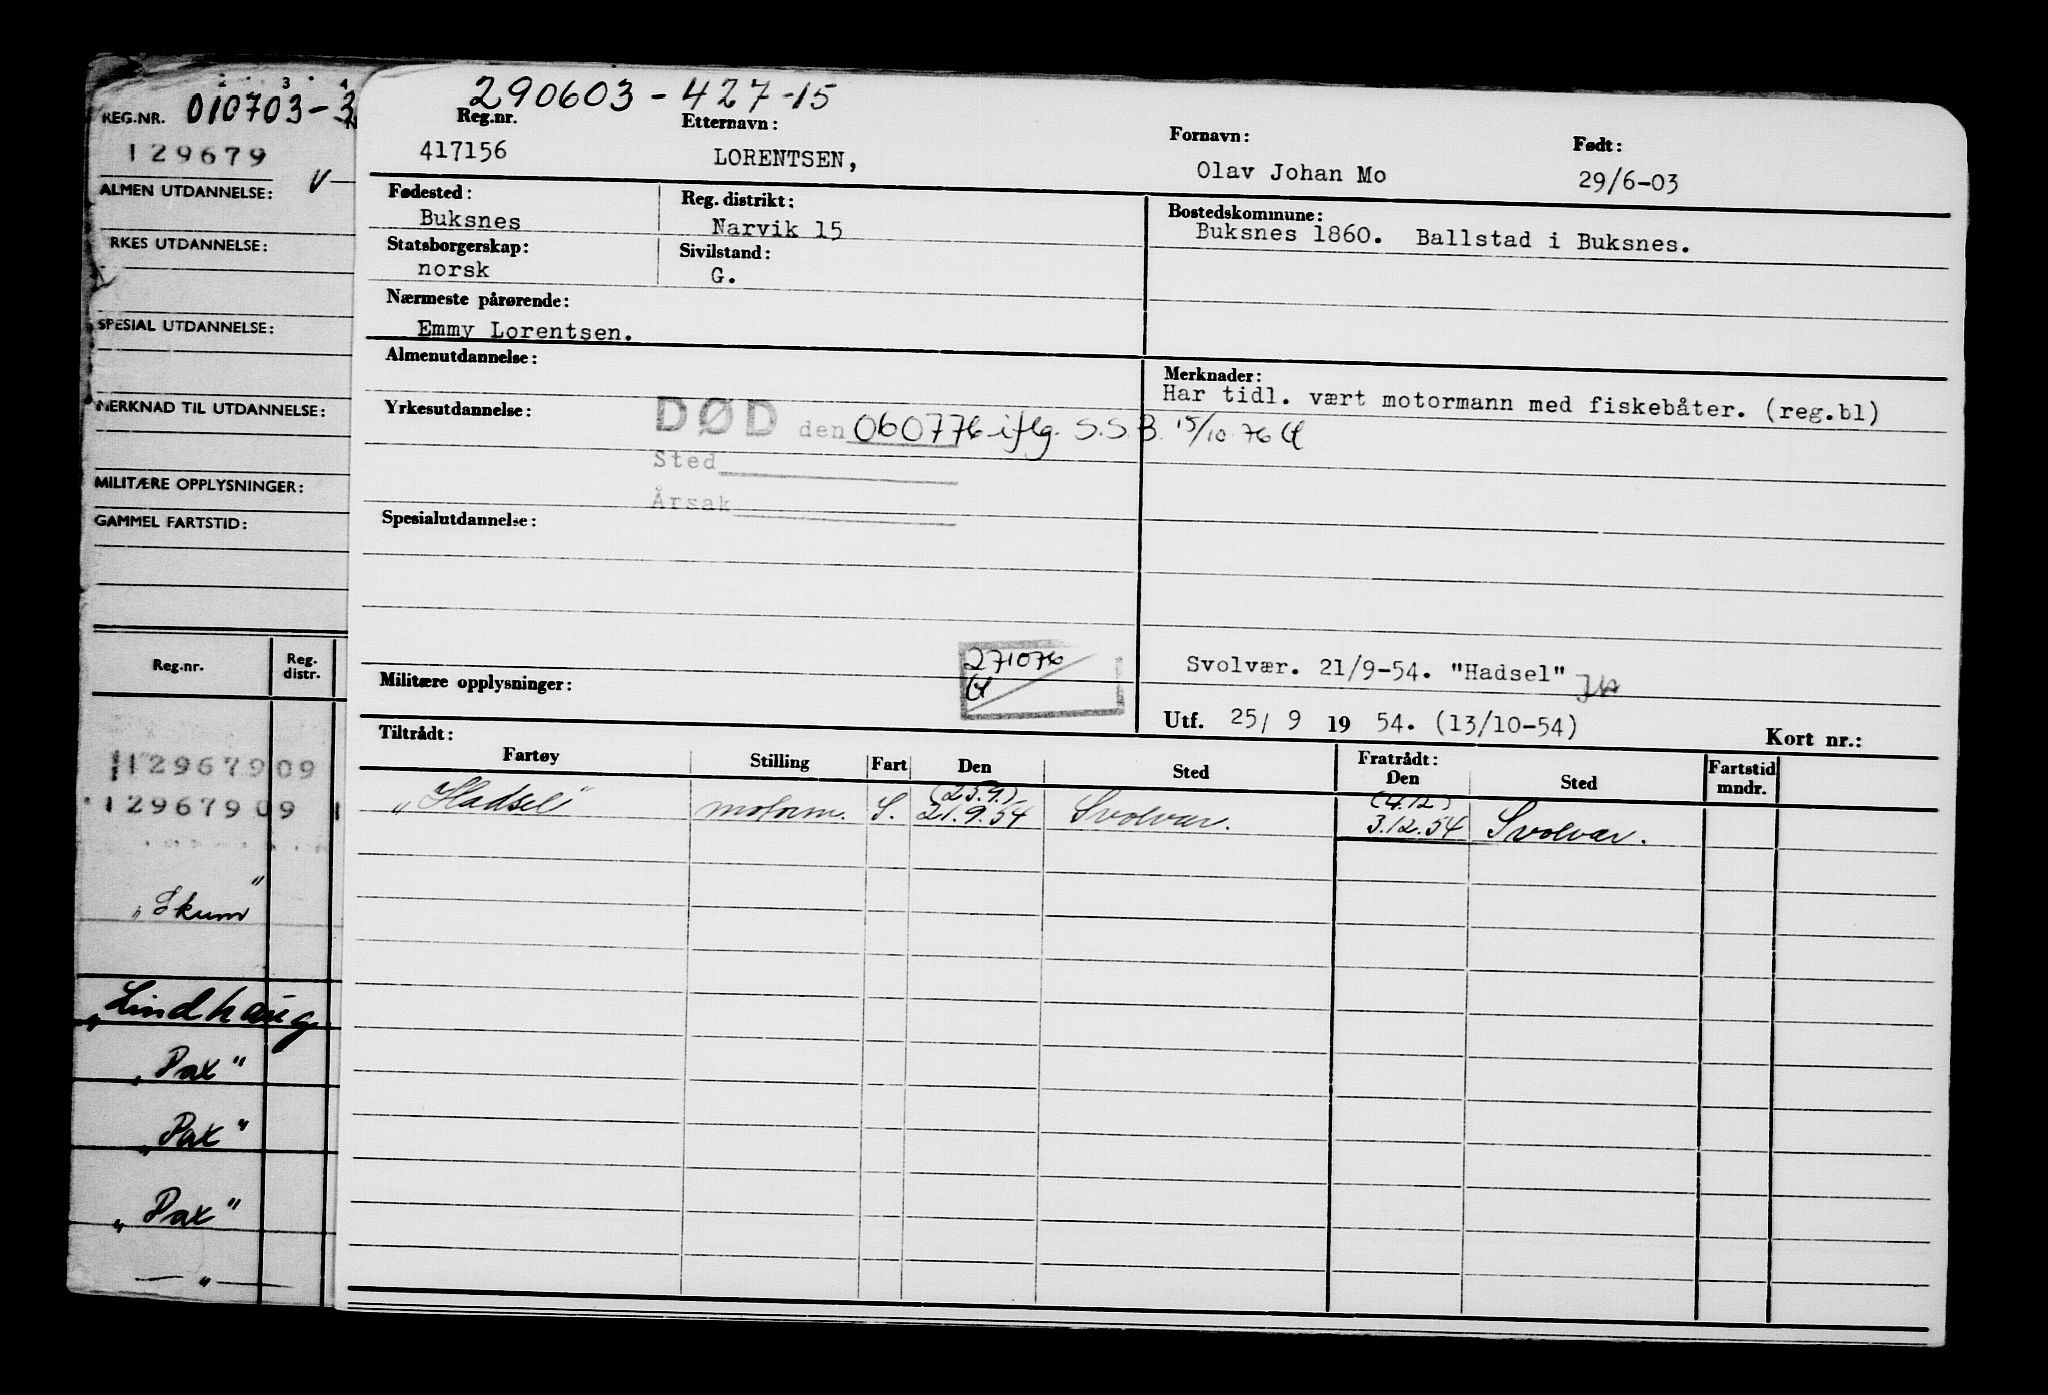 2 3 4
REG.NR. 010703-3
129679
V
ALMEN UTDANNELSE:
RKES UTDANNELSE:
SPESIAL UTDANNELSE:
MERKNAD TIL UTDANNELSE:
MILITÆRE OPPLYSNINGER:
GAMMEL FARTSTID:
Reg.nr. Reg. distr.
12967909
12967909 1
"Skum"
"Lindhaug
"Pax"
"Pax"
"Pax"
— " —
290603-427-15
Reg.nr. Etternavn: Fornavn: Født:
417156 LORENTSEN, Olav Johan Mo 29/6-03
Fødested: Reg. distrikt: Bostedskommune:
Buksnes Narvik 15 Buksnes 1860. Ballstad i Buksnes.
Statsborgerskap: Sivilstand:
norsk G.
Nærmeste pårørende:
Emmy Lorentsen.
Almenutdannelse: Merknader:
Har tidl. vært motormann med fiskebåter. (reg.bl)
Yrkesutdannelse: DØD den 060776 iflg. S.S.B. 15/10-76
Sted
Årsak
Spesialutdannelse:
271076
Svolvær. 21/9-54. "Hadsel"
Militære opplysninger:
Utf. 25/ 9 19 54. (13/10-54) Kort nr.:
Tiltrådt: Fratrådt:
Fartøy Stilling Fart Den Sted Den Sted Fartstid mndr.
(23.9.) (4.12)
"Hadsel" motorm. S. 21.9.54 Svolvær. 3.12.54 Svolvær.